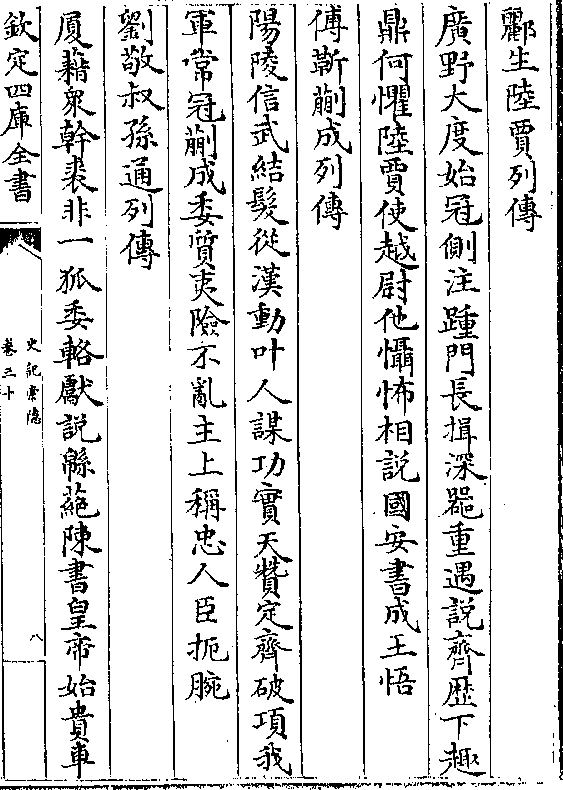 酈生陸賈列傳
廣野大度始冠側注踵門長揖深器重遇說齊歴下趣
鼎何懼陸賈使越尉他懾怖相說國安書成王悟
傅靳蒯成列傳
陽陵信武結髮從漢動叶人謀功實天贊定齊破項我
軍常冠蒯成委質夷險不亂主上稱忠人臣扼腕
劉敬叔孫通列傳
厦藉衆幹裘非一狐委輅獻說緜蕝陳書皇帝始貴車
欽定四庫全書
史記索隱
卷三十
八